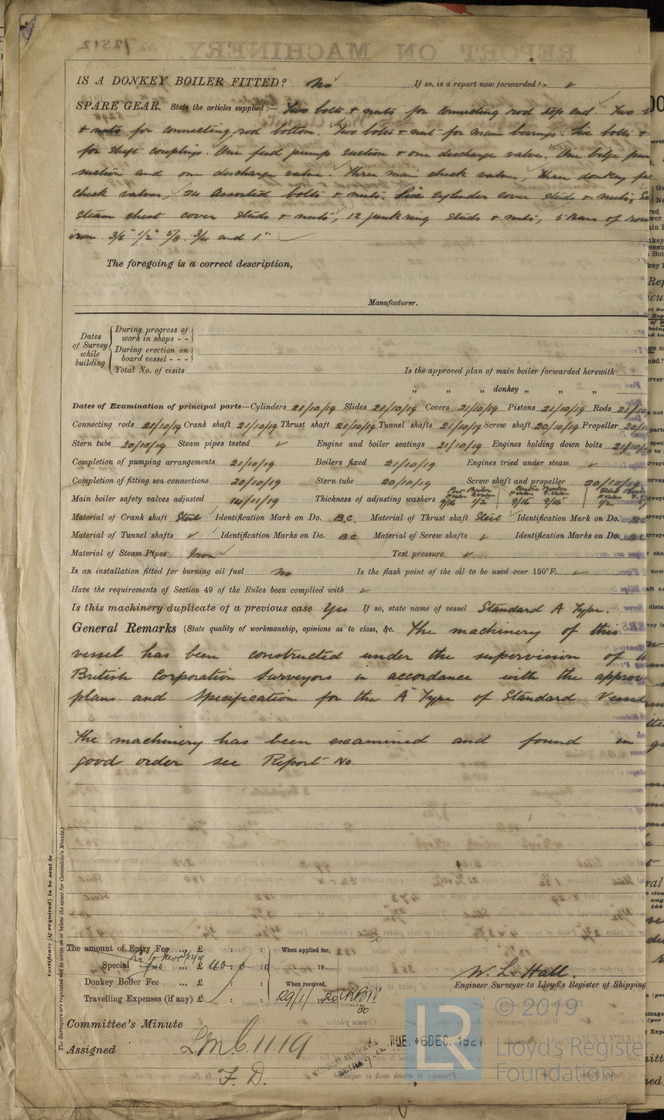 REPORT ON MACHINERY
IS A DONKEY BOILER FITTED? No If so, is a report now forwarded? ✓
SPARE GEAR. State the articles supplied:— Two bolts & nuts for connecting rod top end Two b
& nuts for connecting rod bottom. Two bolts & nuts for main bearings. Six bolts &
for shaft couplings. One feed pump suction & one discharge valve. One bilge pum
suction and one discharge valve. Three main check valves. Three donkey fe
check valves, 24 Assorted bolts & nuts, Six cylinder cover studs & nuts,
steam chest cover studs & nuts, 12 junk ring studs & nuts, 6 bars of
iron 3/8 1/2 5/8 3/4 and 1"
The foregoing is a correct description,
Manufacturer.
Dates of Survey while building
During progress of work in shops - -
During erection on board vessel - - -
Total No. of visits
Is the approved plan of main boiler forwarded herewith
" " donkey " " "
Dates of Examination of principal parts—Cylinders 21/10/19 Slides 21/10/19 Covers 21/10/19 Pistons 21/10/19 Rods 21/10/19
Connecting rods 21/10/19 Crank shaft 21/10/19 Thrust shaft 21/10/19 Tunnel shafts 21/10/19 Screw shaft 20/10/19 Propeller 20/1
Stern tube 20/10/19 Steam pipes tested ✓ Engine and boiler seatings 21/10/19 Engines holding down bolts 21/10/19
Completion of pumping arrangements 21/10/19 Boilers fixed 21/10/19 Engines tried under steam ✓
Completion of fitting sea connections 20/10/19 Stern tube 20/10/19 Screw shaft and propeller 20/10/19
Main boiler safety valves adjusted 14/11/19 Thickness of adjusting washers
Material of Crank shaft Steel Identification Mark on Do. BC Material of Thrust shaft Steel Identification Mark on Do. BC
Material of Tunnel shafts ✓ Identification Marks on Do. BC Material of Screw shafts ✓ Identification Marks on Do. BC
Material of Steam Pipes Iron Test pressure ✓
Is an installation fitted for burning oil fuel No Is the flash point of the oil to be used over 150°F. ✓
Have the requirements of Section 49 of the Rules been complied with ✓
Is this machinery duplicate of a previous case Yes If so, state name of vessel Standard A Type.
General Remarks (State quality of workmanship, opinions as to class, &c. The machinery of this
vessel has been constructed under the supervision of
British Corporation Surveyors in accordance with the approv
plans and Specification for the "A" Type of Standard Vessel
The machinery has been examined and found in
good order see Report No.
Certificate (if required) to be sent to
The Surveyors are requested not to write on or below the space for Committee's Minute.
The amount of Entry Fee ... £ : : When applied for,
Special ... £ 40 : 0 : 0 19
Donkey Boiler Fee ... £ : : When received,
Travelling Expenses (if any) £ : : 29/1/20
W. L. Hall.
Engineer Surveyor to Lloyd's Register of Shipping
Committee's Minute
TUE. 6 DEC. 1921
Assigned LMC 11.19
F. D.
LR © 2019
Lloyd's Register
Foundation